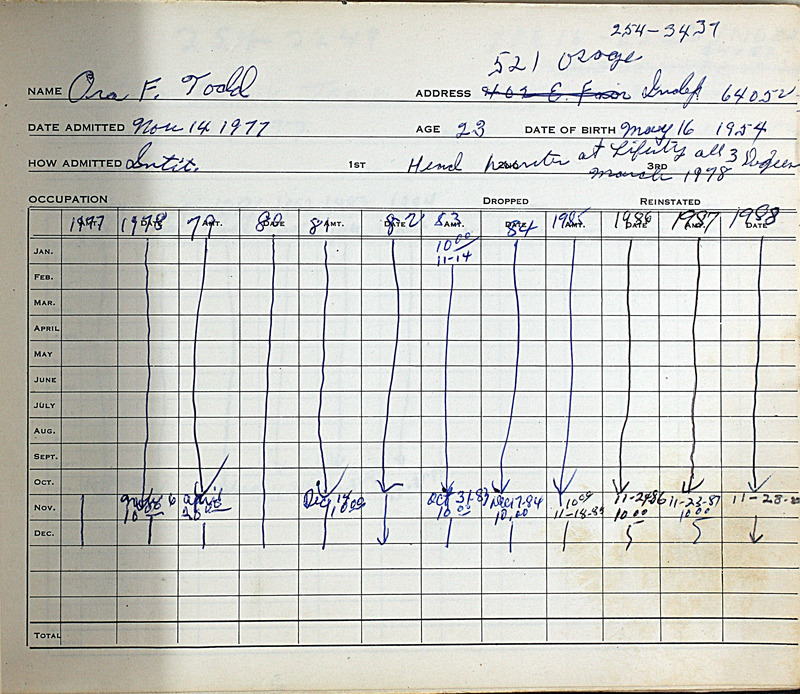 254-3437
521 Osage
NAME Ora F. Todd ADDRESS 402 E. Indep 64052
DATE ADMITTED Nov 14 1977 AGE 23 DATE OF BIRTH May 16 1954
HOW ADMITTED Intit. 1ST Heard at Liberty all 3 Degrees 3RD
March 1978
OCCUPATION DROPPED REINSTATED
1977 1978 79 80 81 82 83 84 1985 1986 1987 1988
AMT. DATE AMT. DATE AMT. DATE AMT. DATE AMT. DATE AMT. DATE
JAN. 10 00
11-14
FEB.
MAR.
APRIL
MAY
JUNE
JULY
AUG.
SEPT.
OCT.
NOV. Dec 14 Oct 31-83 Dec 17-84 10 00 11-24-86 11-23-87 11-28-
10 00 20 00 10.00 10 00 10.00 11-18-85 10.00 10 00
DEC.
TOTAL